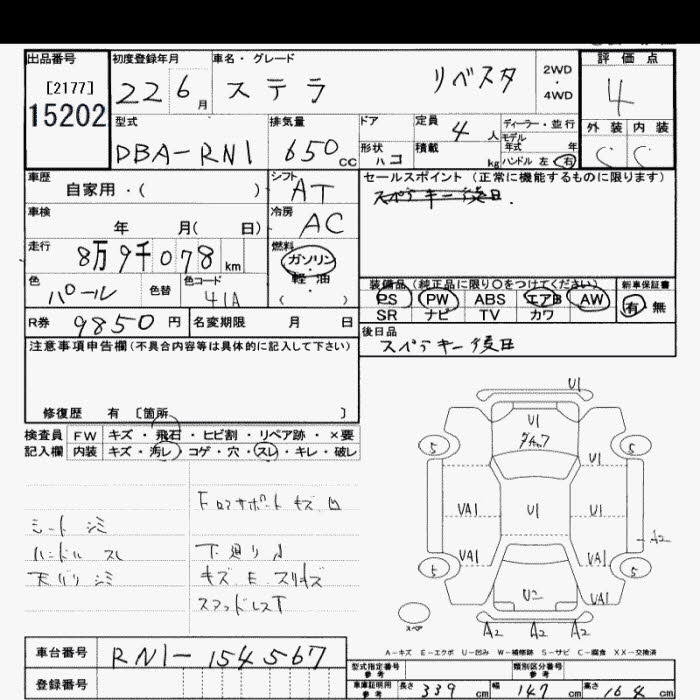 出品番号 初度登録年月 車名・グレード 評価点
[2177] 22 6月 ステラ リベスタ 2WD・4WD 4
15202 型式 排気量 ドア 定員 4人 ディーラー・並行 外装 内装
DBA-RN1 650cc 形状 ハコ 積載 kg モデル年式 年 C C
ハンドル 左 右
車歴 シフト セールスポイント(正常に機能するものに限ります)
自家用・( ) AT スペアキー後日.
車検 年 月( 日) 冷房 AC
走行 8万9千078km 燃料 ガソリン・軽油 ( )
色 パール 色替 色コード 41A
装備品(純正品に限り○をつけてください) 新車保証書
PS PW ABS エアB AW 有 無
SR ナビ TV カワ
R券 9850円 名変期限 月 日 後日品
スペアキー後日
注意事項申告欄(不具合内容等は具体的に記入して下さい)
修復歴 有 〔箇所 〕
検査員 FW キズ・飛石・ヒビ割・リペア跡・×要
記入欄 内装 キズ・汚レ・コゲ・穴・スレ・キレ・破レ
シートシミ
ハンドルスレ
天バリシミ
キズ E スリキズ
U1
U1
5 5
U1
VA1 U1 U1
A2
VA1 VA1
5 5
U2
スペア
A2 A2 A2
A-キズ E-エクボ U-凹み W-補修跡 S-サビ C-腐食 XX-交換済
車台番号 RN1-154567
登録番号
型式指定番号 参考 類別区分番号 参考
車庫証明用 参考 長さ 339cm 幅 147cm 高さ 164cm